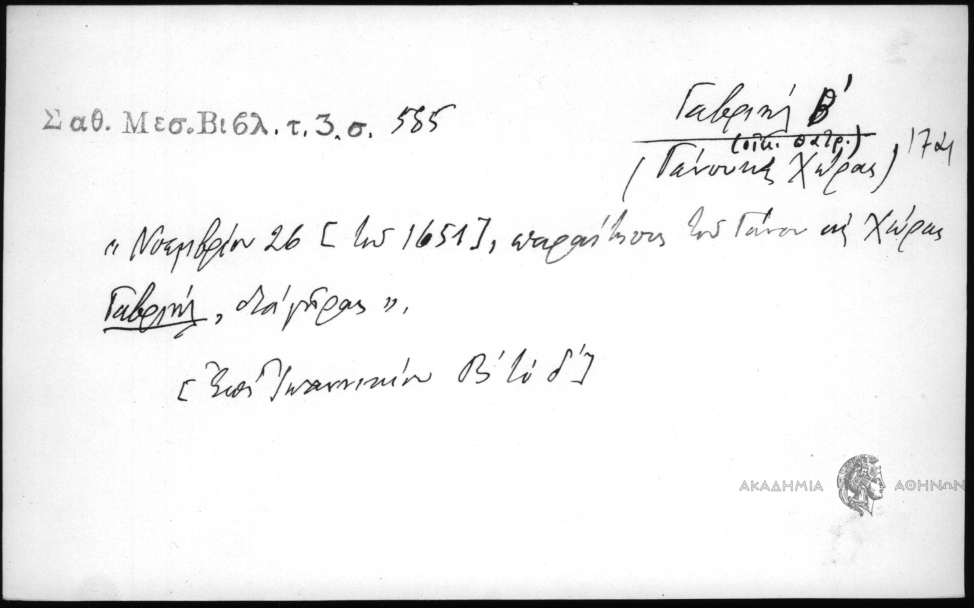 Σαθ. Μεσ. Βιβλ. τ. 3. σ. 585
Γαβριήλ Β'
(οἰκ. πατρ.)
(Γάνου καὶ Χώρας), 1721
"Νοεμβρίου 26 [τοῦ 1651], παραίτησις τοῦ Γάνου καὶ Χώρας
Γαβριήλ, διὰ γῆρας".
[Ἐπὶ Ἰωαννικίου Β' τὸ δ']
ΑΚΑΔΗΜΙΑ ΑΘΗΝΩΝ